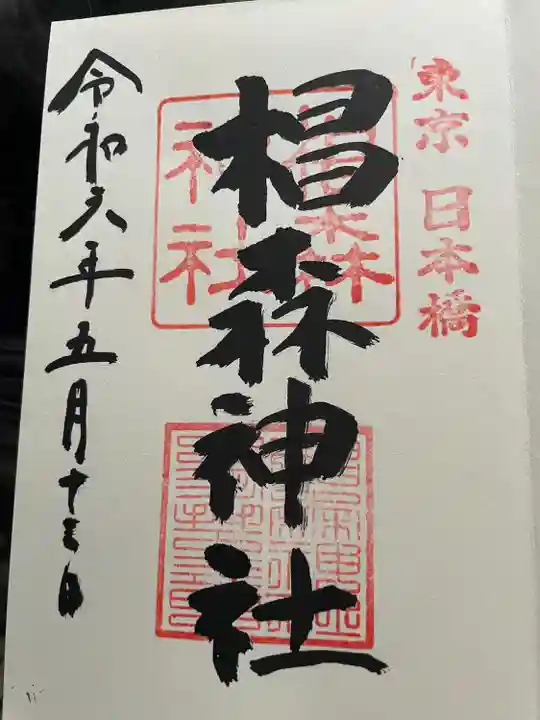 東京 日本橋
椙森神社
椙森
神社
令和六年五月十三日